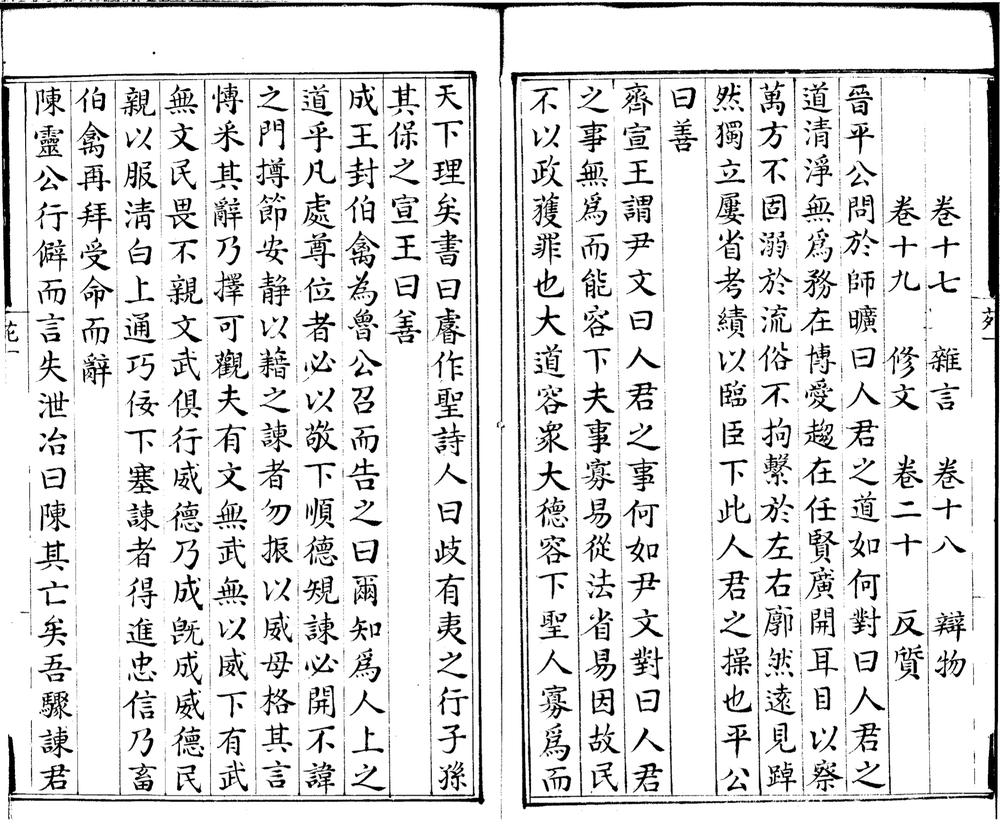 卷十七 雜言 卷十八 辯物
卷十九 修文 卷二十 反質
晉平公問於師曠曰人君之道如何對曰人君之
道清淨無爲務在博愛趨在任賢廣開耳目以察
萬方不固溺於流俗不拘繫於左右廓然遠見踔
然獨立屢省考績以臨臣下此人君之操也平公
曰善
齊宣王謂尹文曰人君之事何如尹文對曰人君
之事無爲而能容下夫事寡易從法省易因故民
不以政獲罪也大道容衆大德容下聖人寡爲而
天下理矣書曰睿作聖詩人曰歧有夷之行子孫
其保之宣王曰善
成王封伯禽為魯公召而告之曰爾知爲人上之
道乎凡處尊位者必以敬下順德規諫必開不諱
之門撙節安静以藉之諫者勿振以威毋格其言
愽采其辭乃擇可觀夫有文無武無以威下有武
無文民畏不親文武俱行威德乃成旣成威德民
親以服清白上通巧佞下塞諫者得進忠信乃畜
伯禽再拜受命而辭
陳靈公行僻而言失泄冶曰陳其亡矣吾驟諫君